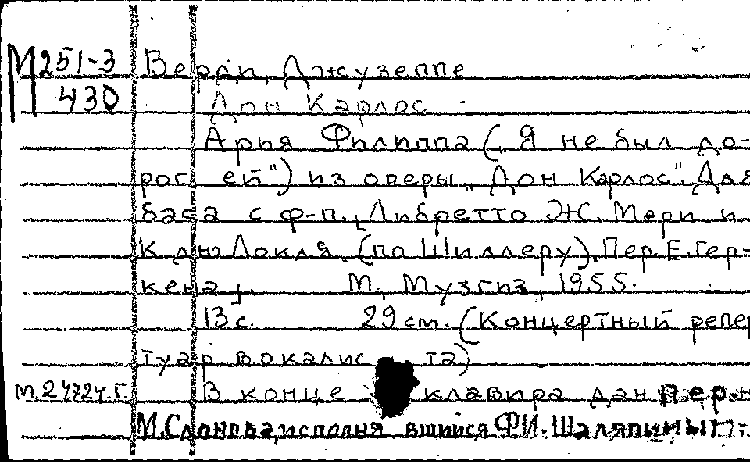 М 251-3 Верди, Джузеппе
430 Дон Карлос
Ария Филиппа („Я не был до-
рог ей") из оперы „Дон Карлос". Для
баса с ф-п. Либретто Ж. Мери и
К. дю Локля (по Шиллеру). Пер. Е. Гер-
кена
М., Музгиз, 1955.
13 с. 29 см. (Концертный репер
туар вокалис та)
м. 24724 г. В конце клавира дан
М. Слонова, исполня вшийся Ф.И. Шаляпиным